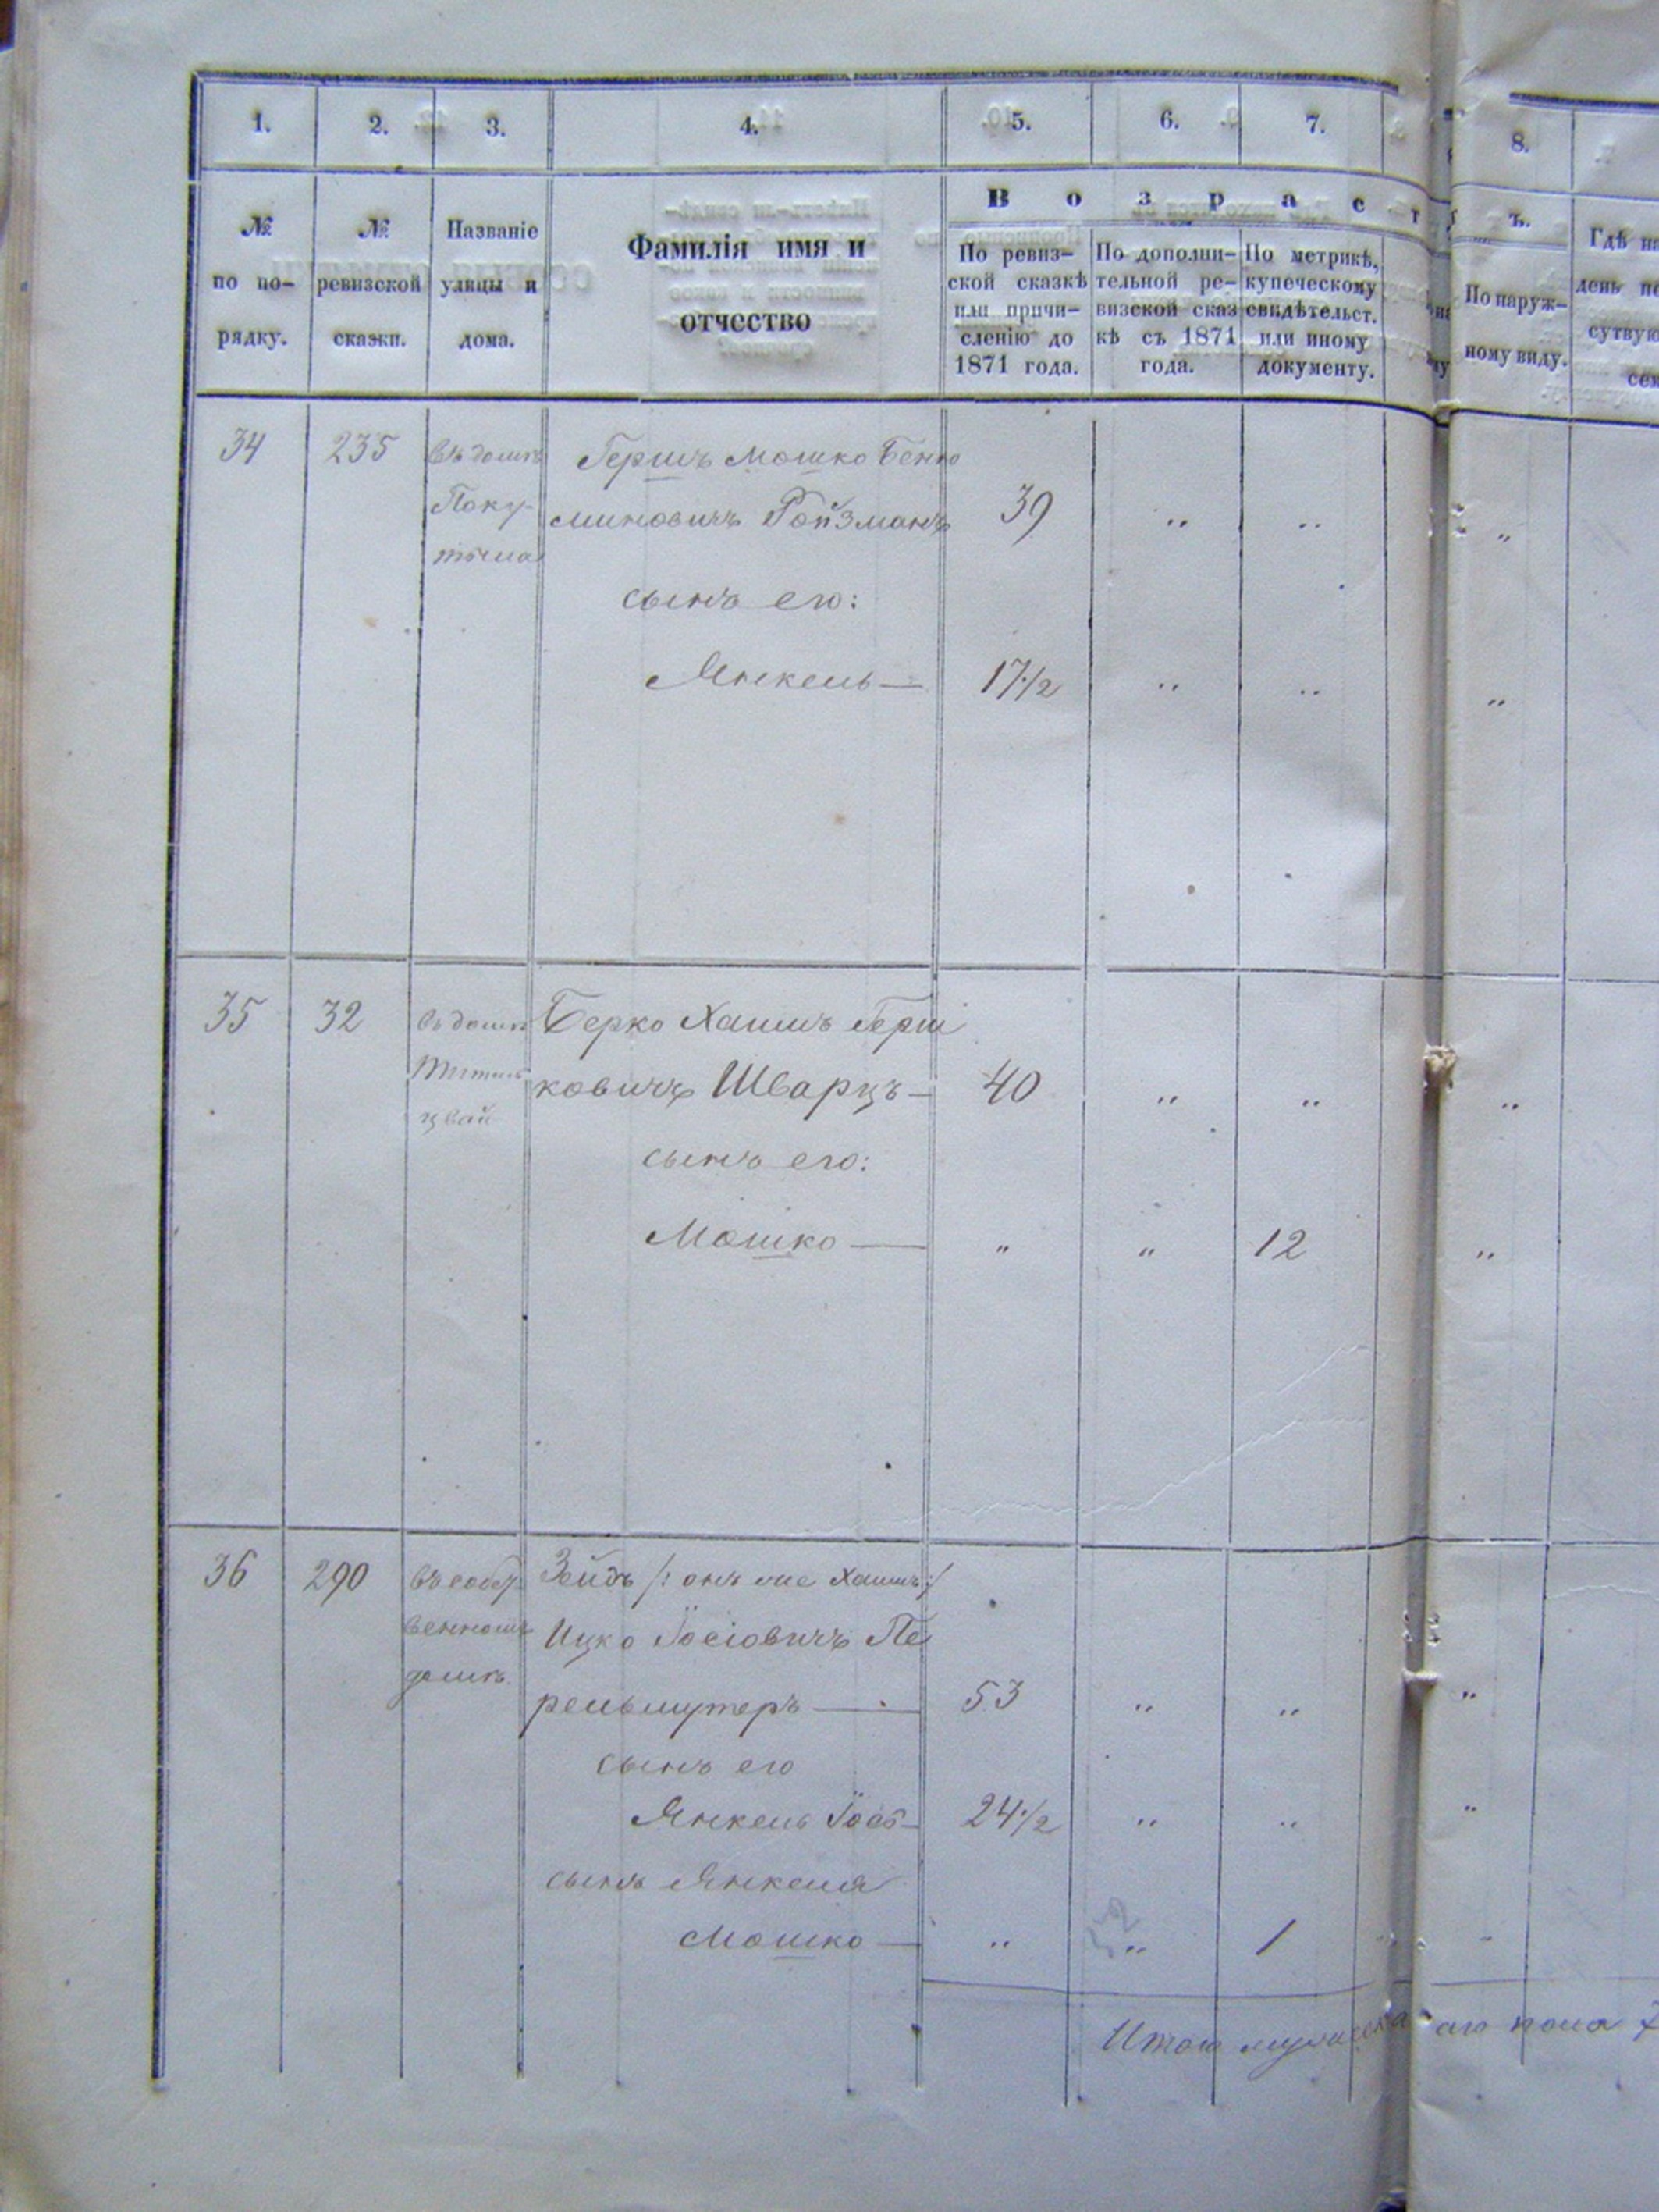 1. 2. 3. 4. 5. 6. 7. 8.
В о з р а с т ъ.
№ по по-рядку.
№ ревизской сказки.
Названіе улицы и дома.
Фамилія имя и отчество
По ревиз-
ской сказкѣ
или причи-
сленію до
1871 года.
По дополни-
тельной ре-
визской сказ
кѣ съ 1871
года.
По метрикѣ,
купеческому
свидѣтельст.
или иному
документу.
По наруж-
ному виду.
Гдѣ на
день
сутству
34 235 въ домѣ Гершъ Мошко Беню
Поку- миновичъ Ройзманъ 39 " " "
сынъ его:
Янкель — 17 1/2 " " "
35 32 въ домѣ Берко Хаимъ Герш
цвай ковичъ Шварцъ — 40 " " "
сынъ его:
Мошко — " " 12 "
36 290 въ собст Зейдъ /: онъ же Хаимъ :/
венномъ Ицко Іосіовичъ Пе
домѣ. рельмутеръ — 53 " " "
сынъ его
Янкель Іось — 24 1/2 " " "
сынъ Янкеля
Мошко — " " 1 "
Итого мужеска го пола 7